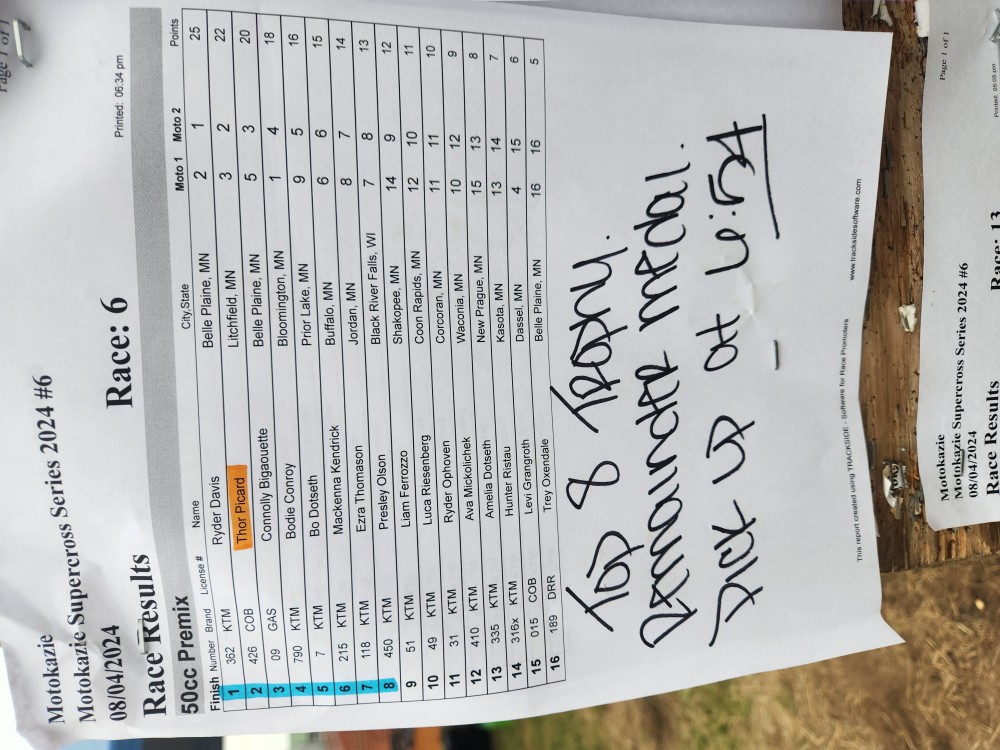 Page 1 of 1
Motokazie
Motokazie Supercross Series 2024 #6
08/04/2024
Race Results Race: 6
Printed: 06:34 pm
50cc Premix
Finish Number Brand License # Name City,State Moto 1 Moto 2 Points
1 362 KTM Ryder Davis Belle Plaine, MN 2 1 25
2 426 COB Thor Picard Litchfield, MN 3 2 22
3 09 GAS Connolly Bigaouette Belle Plaine, MN 5 3 20
4 790 KTM Bodie Conroy Bloomington, MN 1 4 18
5 7 KTM Bo Dotseth Prior Lake, MN 9 5 16
6 215 KTM Mackenna Kendrick Buffalo, MN 6 6 15
7 118 KTM Ezra Thomason Jordan, MN 8 7 14
8 450 KTM Presley Olson Black River Falls, WI 7 8 13
9 51 KTM Liam Ferrozzo Shakopee, MN 14 9 12
10 49 KTM Luca Riesenberg Coon Rapids, MN 12 10 11
11 31 KTM Ryder Ophoven Corcoran, MN 11 11 10
12 410 KTM Ava Mickolichek Waconia, MN 10 12 9
13 335 KTM Amelia Dotseth New Prague, MN 15 13 8
14 316x KTM Hunter Ristau Kasota, MN 13 14 7
15 015 COB Levi Grangroth Dassel, MN 4 15 6
16 189 DRR Trey Oxendale Belle Plaine, MN 16 16 5
Top 8 Trophy.
Remainder medal.
Pick up at 6:54
This report created using TRACKSIDE - Software for Race Promoters www.tracksidesoftware.com
Page 1 of 1
Motokazie
Motokazie Supercross Series 2024 #6
08/04/2024
Race Results Race: 13